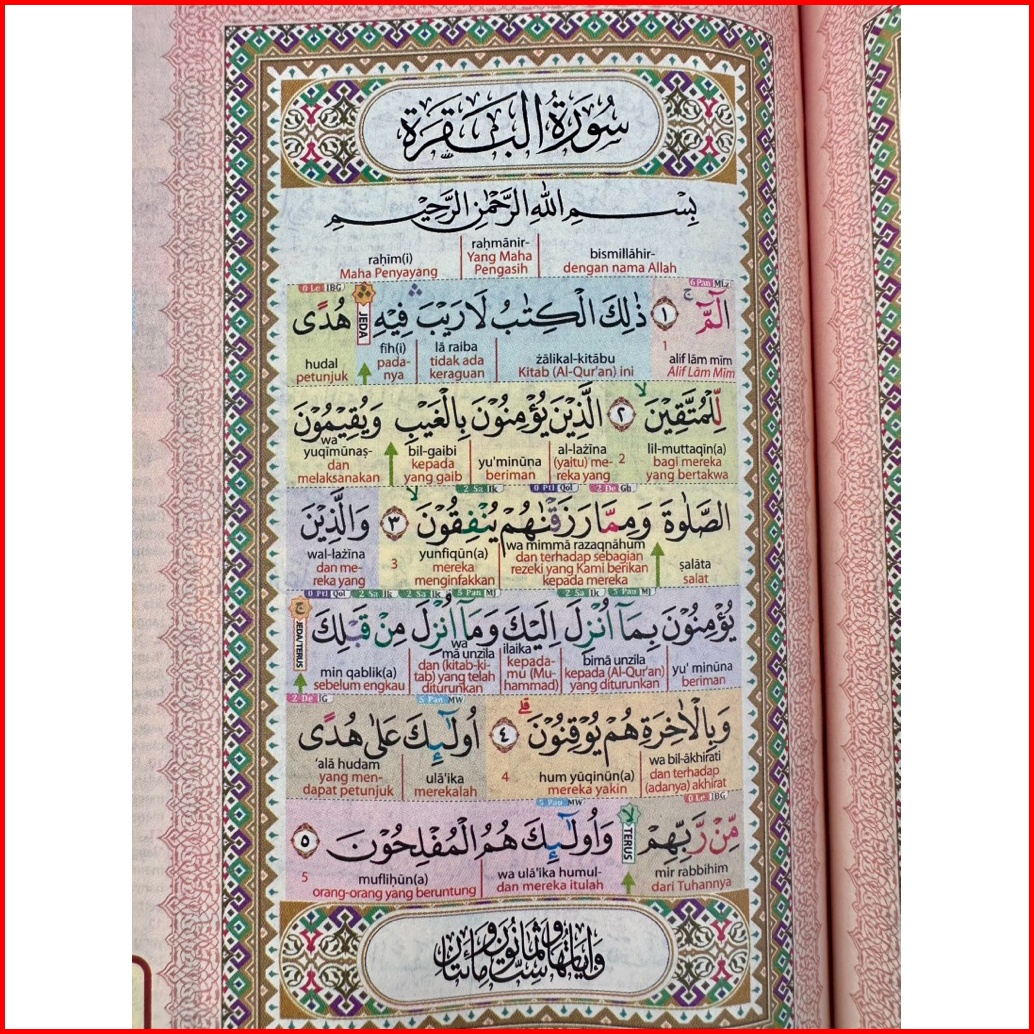 سُورَةُ الْبَقَرَةِ
بِسْمِ اللّٰهِ الرَّحْمٰنِ الرَّحِيْمِ
bismillāhir- raḥmānir- raḥīm(i)
dengan nama Allah Yang Maha Pengasih Maha Penyayang
0 Le IBG 6 Pan MLz
الۤمّۤ ۚ ١ ذٰلِكَ الْكِتٰبُ لَا رَيْبَ ۛ فِيْهِ ۛ JEDA هُدًى
alif lām mīm 1 żālikal-kitābu lā raiba fīh(i) hudal
Alif Lām Mīm Kitab (Al-Qur'an) ini tidak ada keraguan pada-nya petunjuk
لِّلْمُتَّقِيْنَ ۙ ٢ الَّذِيْنَ يُؤْمِنُوْنَ بِالْغَيْبِ وَيُقِيْمُوْنَ
lil-muttaqīn(a) 2 al-lażīna yu'minūna bil-gaibi wa yuqīmūnaṣ-
bagi mereka yang bertakwa (yaitu) me-reka yang beriman kepada yang gaib dan melaksanakan
2 Sa Ik 0 Ptl Qol 2 De Gh
الصَّلٰوةَ وَمِمَّا رَزَقْنٰهُمْ يُنْفِقُوْنَ ۙ ٣ وَالَّذِيْنَ
ṣalāta wa mimmā razaqnāhum yunfiqūn(a) 3 wal-lażīna
salat dan terhadap sebagian rezeki yang Kami berikan kepada mereka mereka menginfakkan dan me-reka yang
0 Ptl Qol 2 Sa Ik 2 Sa Ik 5 Pan MJ 2 Sa Ik 5 Pan MJ
يُؤْمِنُوْنَ بِمَآ اُنْزِلَ اِلَيْكَ وَمَآ اُنْزِلَ مِنْ قَبْلِكَ ۚ JEDA/TERUS
yu'minūna bimā unzila ilaika wa mā unzila min qablik(a)
beriman kepada (Al-Qur'an) yang diturunkan kepada-mu (Mu-hammad) dan (kitab-ki-tab) yang telah diturunkan sebelum engkau
2 De IG 5 Pan MW
وَبِالْاٰخِرَةِ هُمْ يُوْقِنُوْنَ ۗ ٤ اُولٰۤىِٕكَ عَلٰى هُدًى
wa bil-ākhirati hum yūqinūn(a) 4 ulā'ika ‘alā hudam
dan terhadap (adanya) akhirat mereka yakin merekalah yang men-dapat petunjuk
5 Pan MW 0 Le IBG
مِّنْ رَّبِّهِمْ ۙ TERUS وَاُولٰۤىِٕكَ هُمُ الْمُفْلِحُوْنَ ٥
mir rabbihim wa ulā'ika humul- mufliḥūn(a) 5
dari Tuhannya dan mereka itulah orang-orang yang beruntung
وَاٰيَاتُهَا مِائَتَانِ وَسِتٌّ وَثَمَانُوْنَ